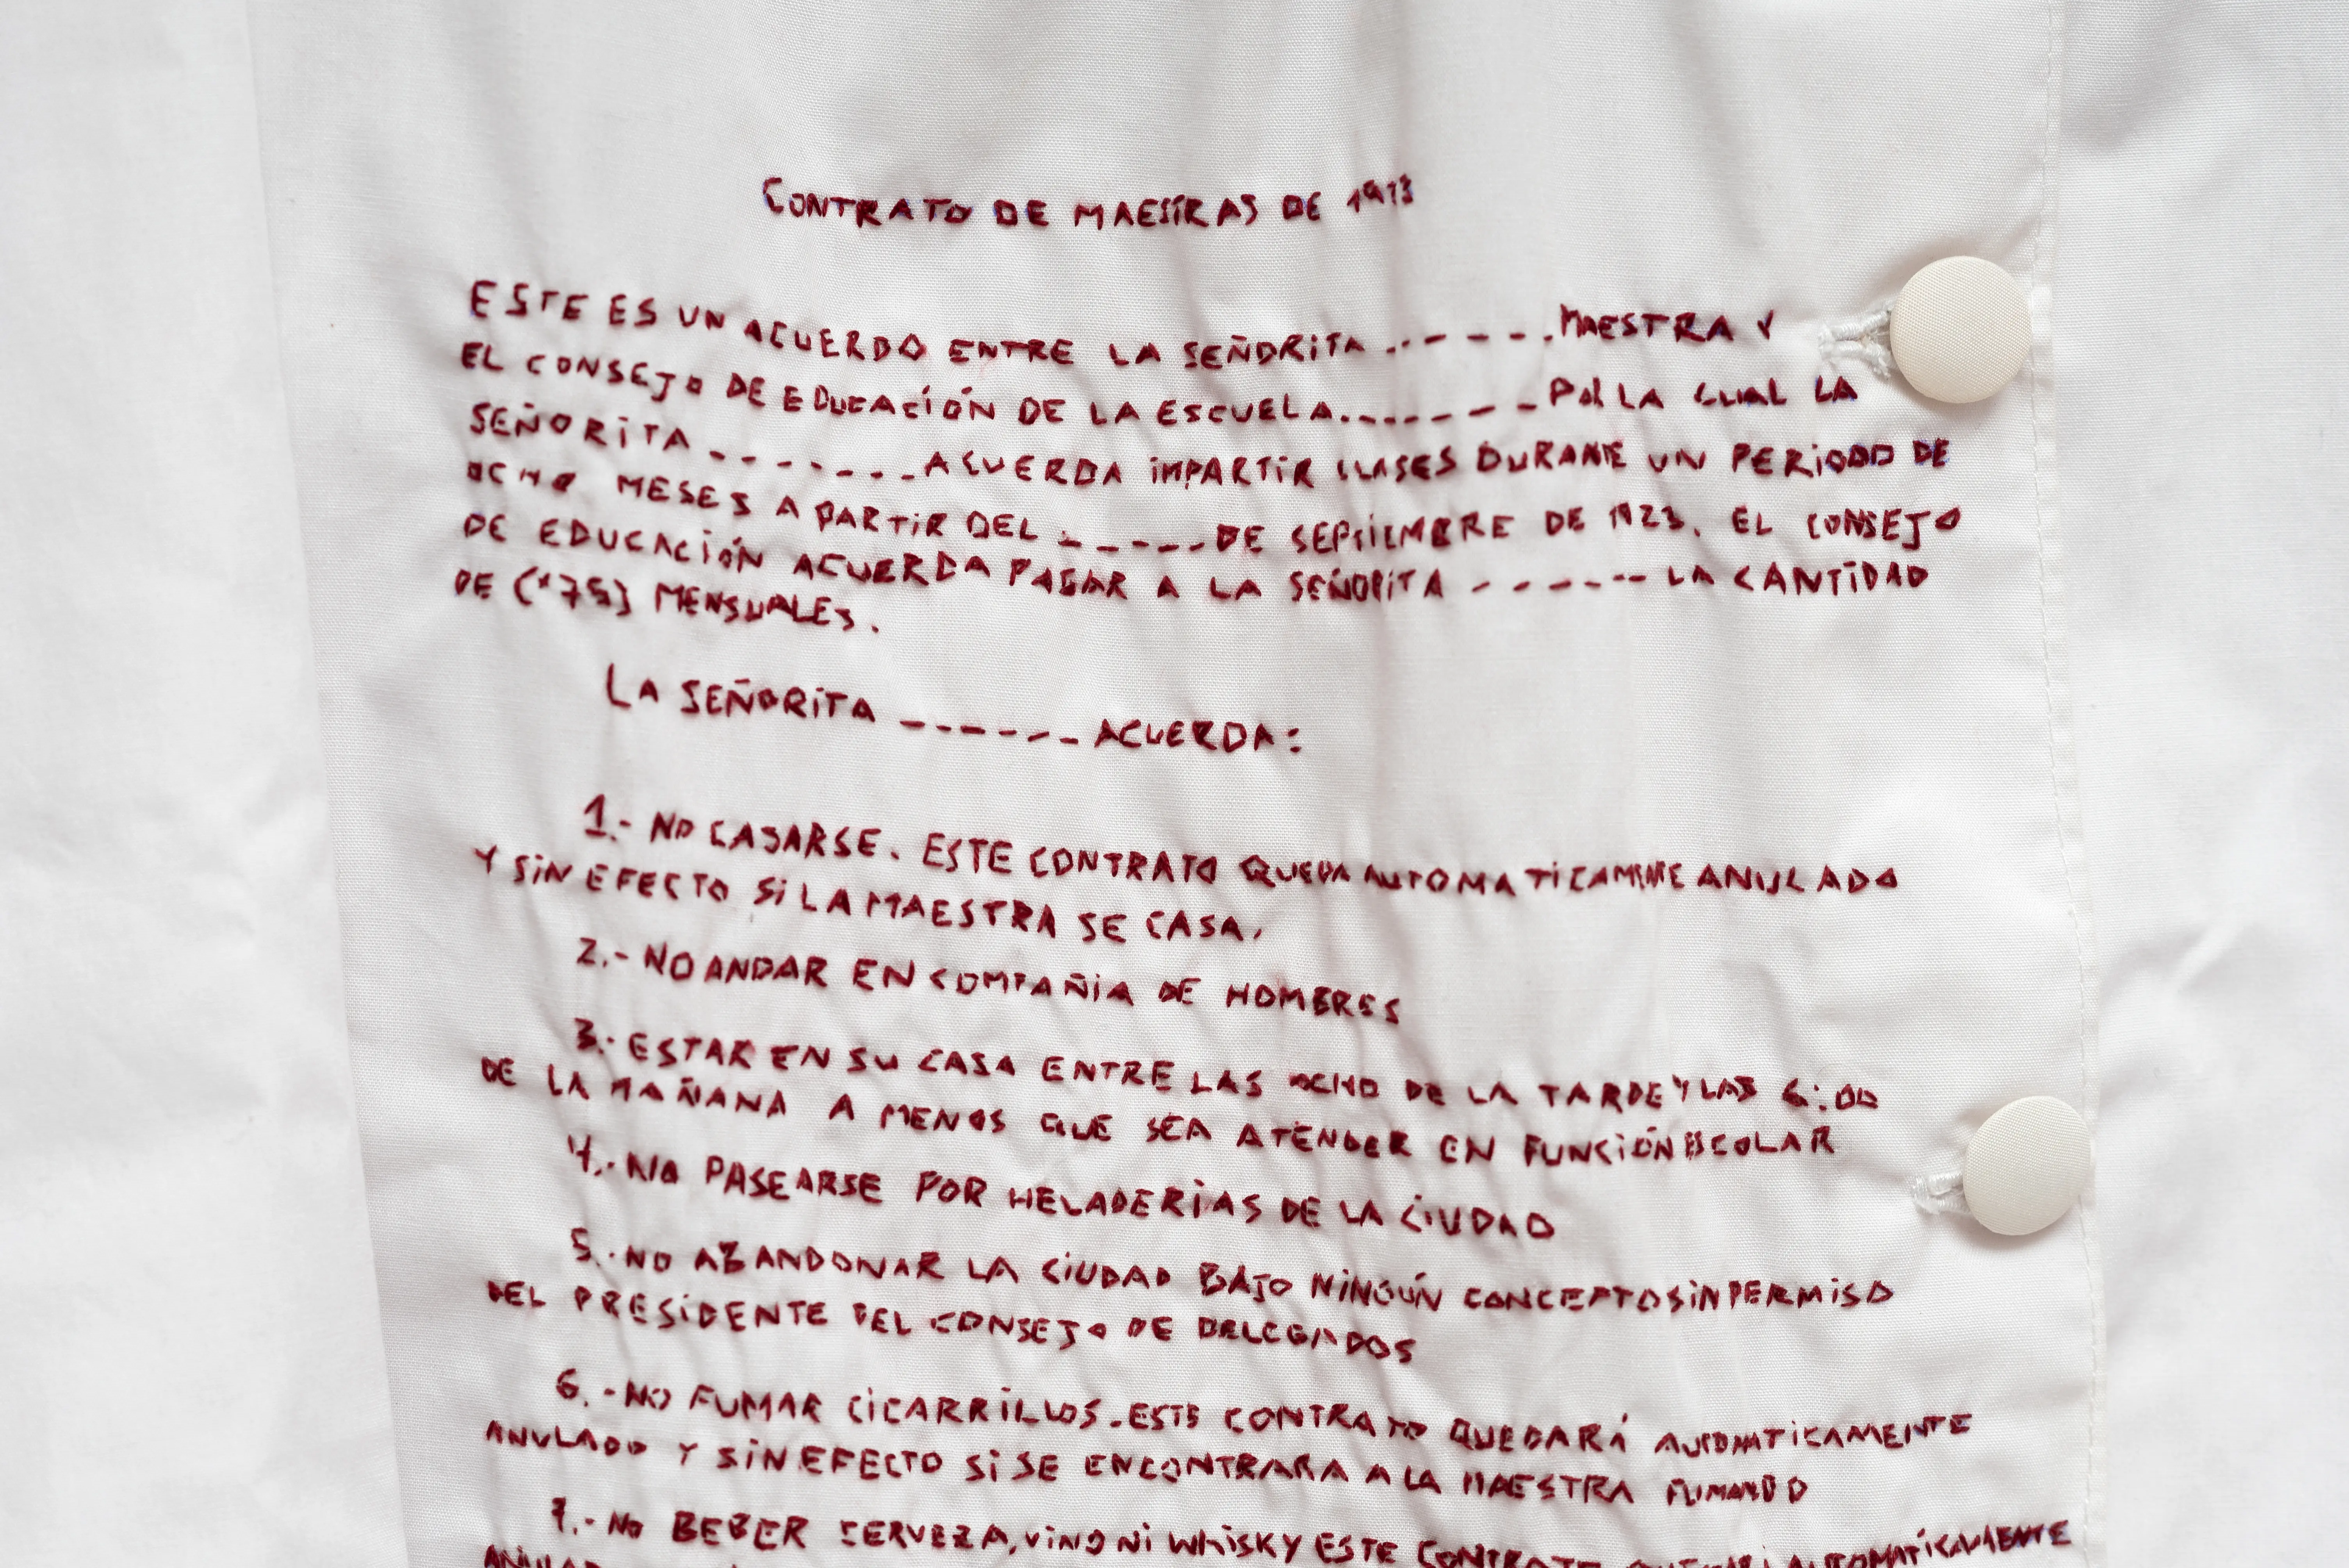 CONTRATO DE MAESTRAS DE 1923
ESTE ES UN ACUERDO ENTRE LA SEÑORITA ------- MAESTRA Y
EL CONSEJO DE EDUCACIÓN DE LA ESCUELA ------- POR LA CUAL LA
SEÑORITA ------- ACUERDA IMPARTIR CLASES DURANTE UN PERIODO DE
OCHO MESES A PARTIR DEL ------ DE SEPTIEMBRE DE 1923. EL CONSEJO
DE EDUCACIÓN ACUERDA PAGAR A LA SEÑORITA ------ LA CANTIDAD
DE (*75) MENSUALES.
LA SEÑORITA ------ ACUERDA:
1.- NO CASARSE. ESTE CONTRATO QUEDA AUTOMATICAMENTE ANULADO
Y SIN EFECTO SI LA MAESTRA SE CASA.
2.- NO ANDAR EN COMPAÑIA DE HOMBRES
3.- ESTAR EN SU CASA ENTRE LAS OCHO DE LA TARDE Y LAS 6:00
DE LA MAÑANA A MENOS QUE SEA ATENDER EN FUNCIÓN ESCOLAR
4.- NO PASEARSE POR HELADERIAS DE LA CIUDAD
5.- NO ABANDONAR LA CIUDAD BAJO NINGÚN CONCEPTO SIN PERMISO
DEL PRESIDENTE DEL CONSEJO DE DELEGADOS
6.- NO FUMAR CICARRILLOS. ESTE CONTRATO QUEDARÁ AUTOMATICAMENTE
ANULADO Y SIN EFECTO SI SE ENCONTRARA A LA MAESTRA FUMANDO
7.- NO BEBER CERVEZA, VINO NI WHISKY ESTE CONTRATO AUTOMATICAMENTE